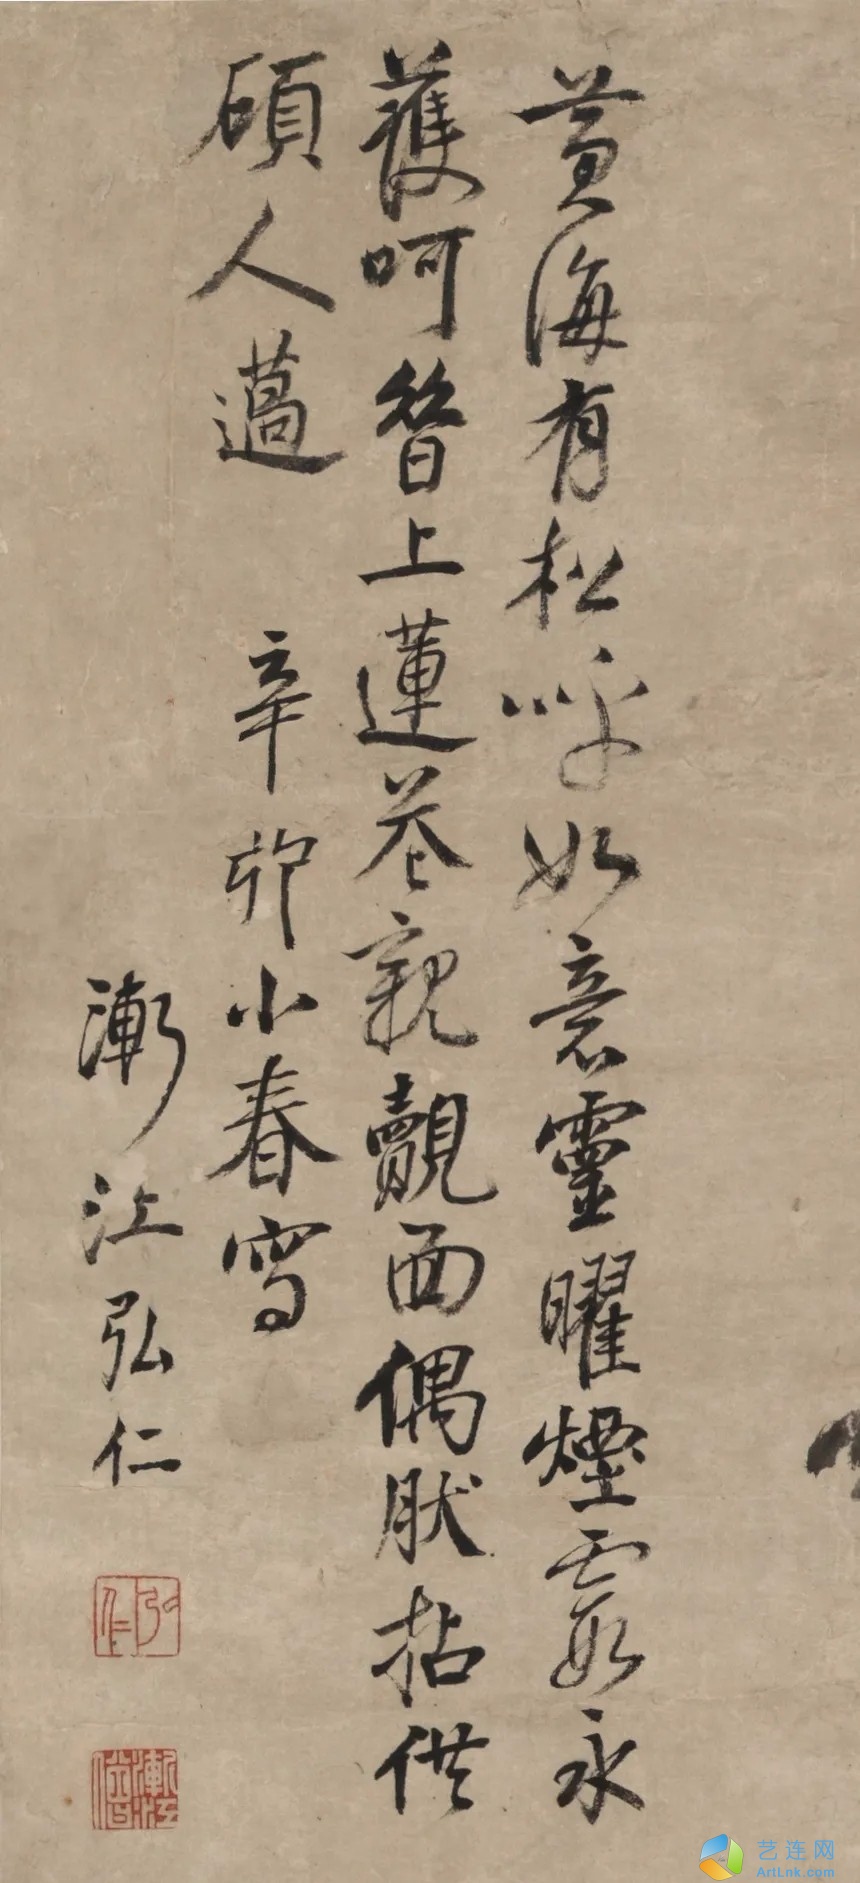 黃海有松呼如意靈曜煙霞永
護呵簪上蓮花親覿面偶肰拈供
碩人薖 辛卯小春寫
漸江弘仁
弘仁
漸江僧
艺连网
ArtLnk.com